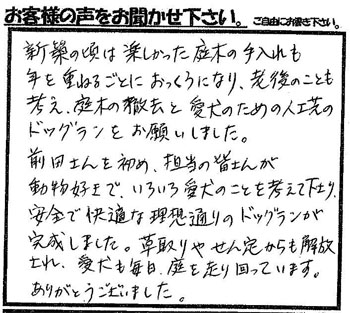 お客様の声をお聞かせ下さい。ご自由にお書き下さい。
新築の頃は楽しかった庭木の手入れも
年を重ねるごとにおっくうになり、老後のことも
考え、庭木の撤去と愛犬のための人工芝の
ドッグランをお願いしました。
前田さんを初め、担当の皆さんが
動物好きで、いろいろ愛犬のことを考えて下さり、
安全で快適な理想通りのドッグランが
完成しました。草取りやせん定からも解放
され、愛犬も毎日、庭を走り回っています。
ありがとうございました。